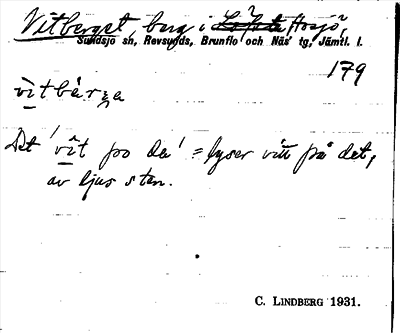 Vitberget, berg i Hosjö,
Sundsjö sh, Revsunds, Brunflo och Näs' tg, Jämtl. l.
179
vìtbær̡a
Det 'vît po de' = lyser vitt på det,
av ljus sten.
C. LINDBERG 1931.